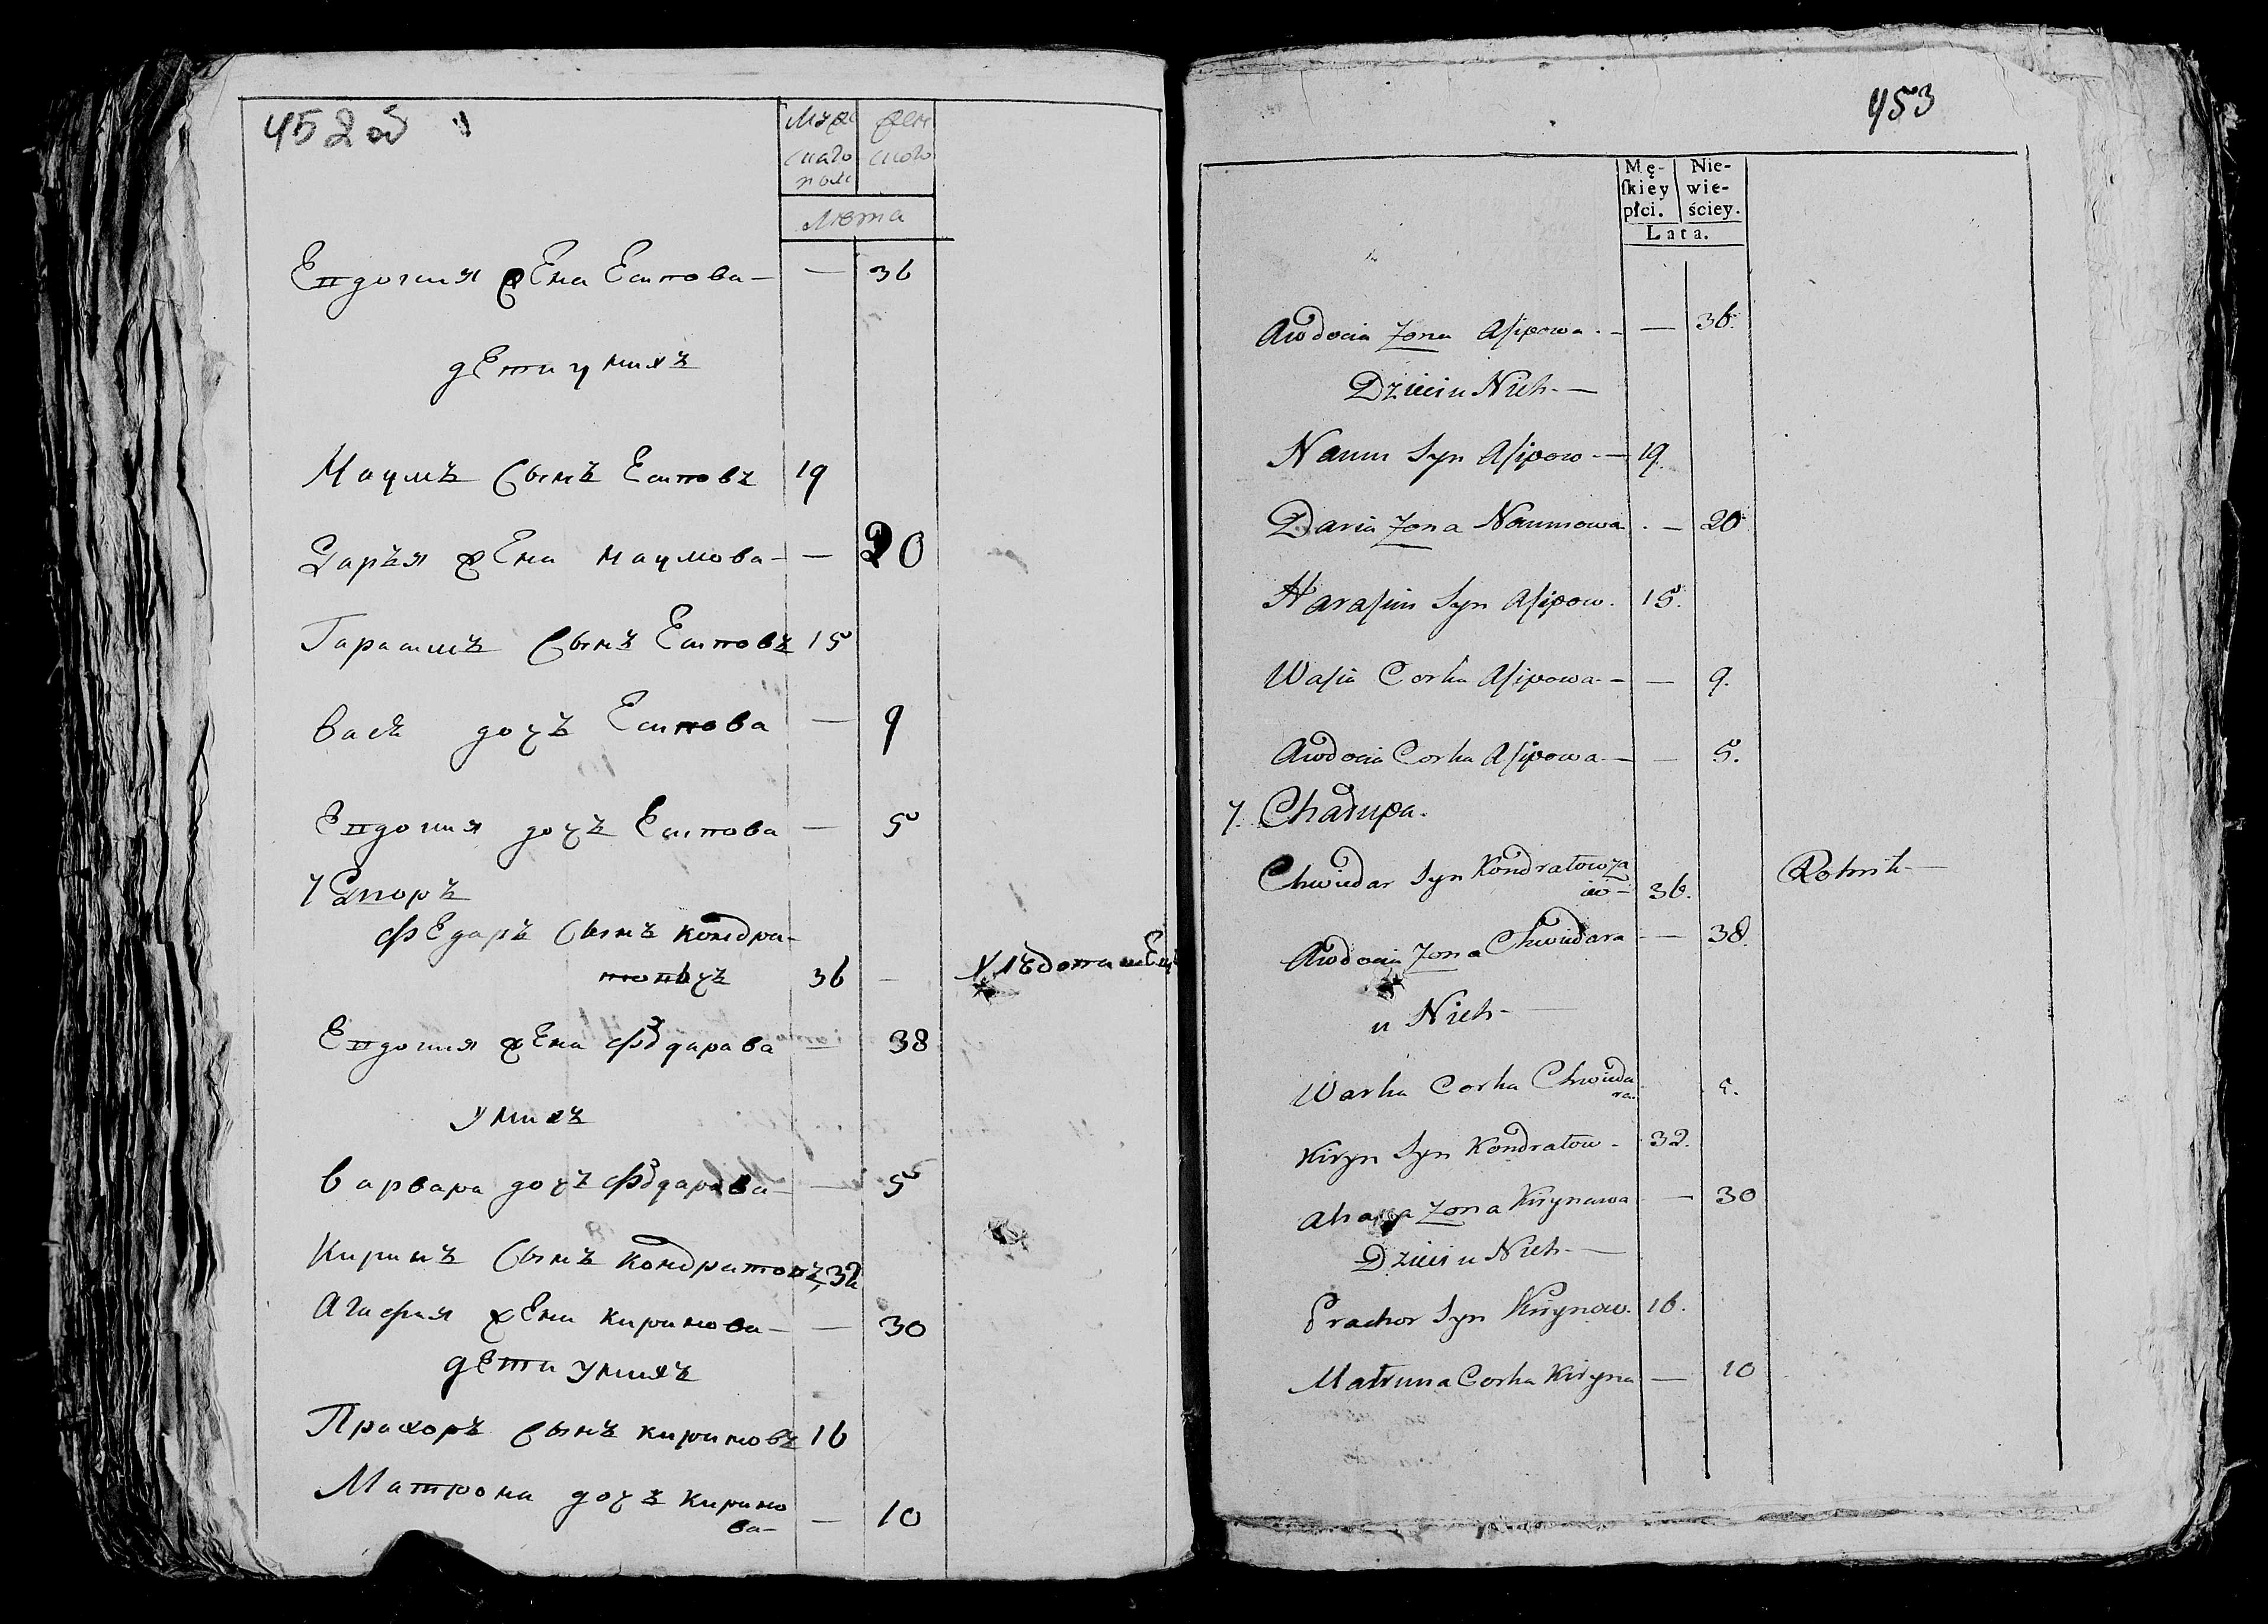 452 об
Муже
скаго
пола
жен
скаго
Лета
Евдокия жена Есипова — — 36
дети у них
Наумъ сынъ Есиповъ 19
Дарья жена Наумова — — 20
Гарасимъ сынъ Есиповъ 15
Вася дочъ Есипова — 9
Евдокия дочъ Есипова — 5
7 Дворъ
Федаръ сынъ Кондра-
товъ 36 —
Евдокия жена Федарава — 38
У нихъ
Варвара дочъ Федарава — — 5
Киринъ сынъ Кондратовъ 32
Агафия жена Киринова — — 30
дети у нихъ
Прахоръ сынъ Кириновъ 16
Матрона дочъ Кирино
ва — — 10
453
Mę-
ſkiey
płci.
Nie-
wie-
ściey.
Lata.
Awdocia Zona Aſipowa. — — 36.
Dzieci u Nich —
Naum Syn Aſipow — 19.
Daria Zona Naumowa. — 20
Haraſim Syn Aſipow. 15.
Waſia Corka Aſipowa — — 9.
Awdocia Corka Aſipowa — — 5.
7. Chałupa.
Chwiedar Syn Kondratow 36. Rolnik —
Awdocia Zona Chwiedara — — 38.
u Nich —
Warka Corka Chwieda
ra. 5.
Kiryn Syn Kondratow — 32.
Ahapa Zona Kirynawa — 30
Dzieci u Nich —
Prachor Syn Kirynow. 16.
Matruna Corka Kiryna — 10